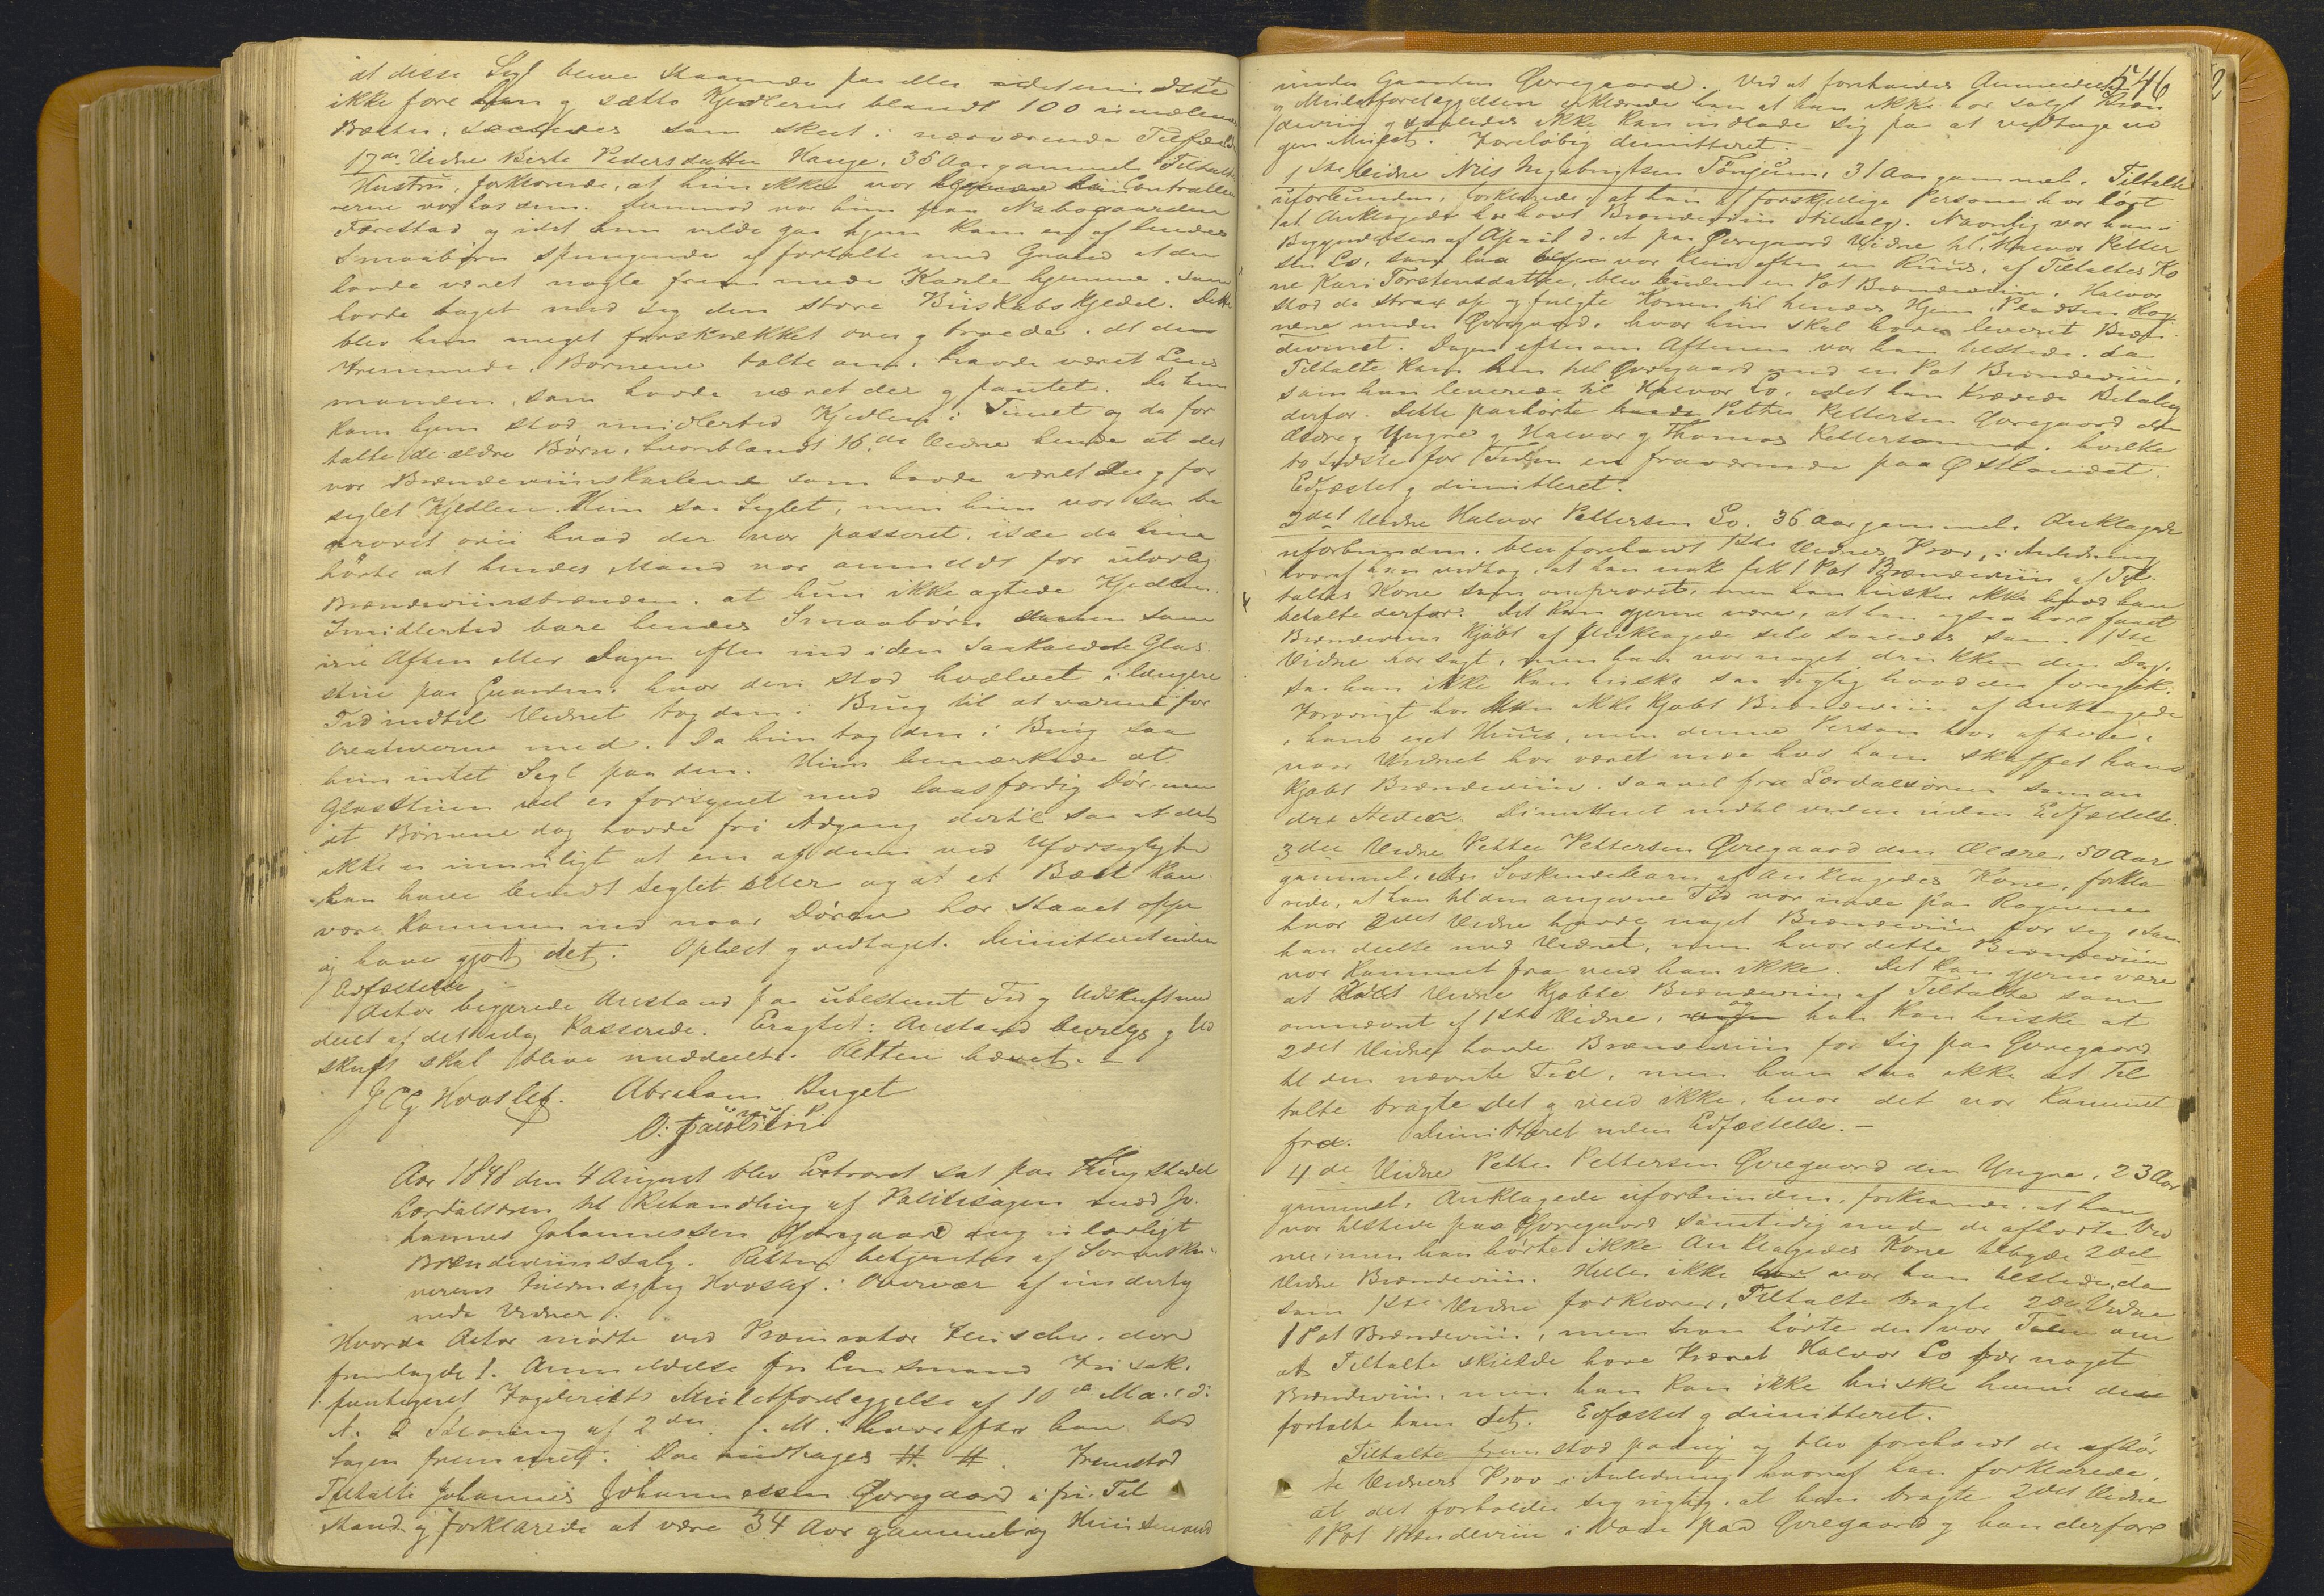 at disse Segl bleve staaende paa eller i det mindste
ikke fore dem og sætte Kjedlerne blandt 100 
Bæster, saaledes som skeet i nærværende Tilfælde
17de Vidne Berte Pedersdatter Hauge, 36 Aar gammel, Tiltaltes
Hustru, forklarede, at hun ikke var hjemme da Controllø-
rerne var hos dem. Derimod var hun paa Nabogaarden
Færestad og idet hun vilde gaa hjem kom en af hendes
Smaabørn springende og fortalte med Graad at der
havde været nogle fremmede Karle hjemme, som
havde taget med sig den store Buskabskjedel. Dette
blev hun meget forskrækket over og troede, at den
Fremmede, Børnene talte om, havde været Lens-
manden, som havde været der og pantet. Da hun
kom hjem stod imidlertid Kjedlen i Tunet og da for-
talte de ældre Børn, hvoriblandt 16de Vidne hende at det
var Brændeviinskarlene som havde været der og for-
seglet Kjedlen. Hun saa Seglet, men hun var saa be-
drøvet over hvad der var passeret, især da hun
hørte at hendes Mand var anmeldt for ulovlig
Brændeviinsbrænden, at hun ikke agtede Kjedlen.
Imidlertid bare hendes Smaabørn denne samme
Aften eller Dagen efter ind i den saakaldte Glas-
stue paa Gaarden, hvor den stod hvælvet i længere
Tid indtil Vidnet tog den i Brug til at varme for
Creaturerne med. Da hun tog den i Brug saa
hun intet Segl paa den. Hun bemærkede at
Glasstuen vel er forsynet med laasfærdig Dør, men
at Børnene dog havde fri Adgang dertil saa at det
ikke er umuligt at en af dem ved Uforsigtighed
kan have brudt Seglet eller og at et Bæst kan
være kommen ind naar Døren har staaet oppe
og have gjort det. Oplæst og vedtaget. Dimitteret uden
Edfæstelse.
Actor begjerede Anstand paa ubestemt Tid og Udskrift med-
deelt af det idag Passerede. Eragtet: Anstand bevilges og Ud-
skrift skal blive meddeelt. Retten hævet.
J C G Hvoslef. Abraham Buget
O. Jacobsen
Aar 1848 den 4 August blev Extraret sat paa Thingstedet
Lærdalsøren til Behandling af Politisagen mod Jo-
hannes Johannessen Øvregaard ang. ulovligt
Brændeviinssalg. Retten betjentes af Sorenskri-
verens Fuldmægtig Hvoslef i Overvær af underteg-
nede Vidner.
Hvorda Actor mødte ved Procurator Fleischer, der
fremlagde 1. Anmeldelse fra Lensmand 
funtageret Fogderiets Mulctforelæggelse af 10de Mai d.
A. 2 Stevning af 2den f. M. hvorefter han bad
Sagen fremmet. Den indtages # #. Fremstod
Tiltalte Johannes Johannessen Øvregaard i fri Til-
stand og forklarede at være 34 Aar gammel og Huusmand
546
2
under Gaarden Øvregaard. Ved at foreholdes Anmeldelsen
og Mulctforelæggelsen erklærede han at han ikke har solgt Bræn-
deviin og saaledes ikke kan indlade sig paa at vedtage no-
gen Mulct. Foreløbig dimitteret.
1ste Vidne Nils Ingebrigtsen Tønjum, 31 Aar gammel, Tiltalte
uforbunden, forklarede, at han af forskjellige Personer har hørt
at Anklagede har havt Brændeviin tilsalg. Navnlig var han i
Begyndelsen af April d. A. paa Øvregaard Vidne til, at Halvor Petter-
sen Lo, som laa  var klein efter en Ruus, af Tiltaltes Ko-
ne Kari Torstensdatter, blev buden en Pot Brændeviin. Halvor
stod da strax op og fulgte Konen til hendes Hjem Pladsen Rog-
nene under Øvregaard, hvor hun skal have leveret Bræn-
devinet. Dagen efter om Aftenen var han tilstede, da
Tiltalte kom hen til Øvregaard med en Pot Brændeviin,
som han leverede til Halvor Lo, idet han krævede Betaling
derfor. Dette paahørte Petter Pettersen Øvregaard den
ældre og Yngre og Halvor og Thomas Petterssønner, hvilke
to sidste for Tiden ere fraværende paa Østlandet.
Edfæstet og dimitteret.
2det Vidne Halvor Pettersen Lo, 36 Aar gammel, Anklagede
uforbunden, blev foreholdt 1ste Vidnes Prov, i Anledning
hvoraf han vedtog, at han nok fik 1 Pot Brændeviin af Til-
taltes Kone som omprovet, men han husker ikke hvad han
betalte derfor. Det kan gjerne være, at han ogsaa have faaet
Brændeviin kjøbt af Anklagede selv saaledes som 1ste
Vidne har sagt, men han var noget drukken den Dag,
saa han ikke kan huske saa rigtig hvad der foregik.
Forøvrigt har han ikke kjøbt Brændeviin af Anklagede
i hans eget Huus, men denne Person har oftere,
naar Vidnet har været  hos ham skaffet ham
kjøbt Brændeviin saavel fra Lærdalsøren som an-
dre Steder. Dimitteret indtil videre uden Edfæstelse.
3die Vidne Petter Pettersen Øvregaard den Ældre, 50 Aar
gammel, Søskendebarn af Anklagedes Kone, forkla-
rede, at han til den angivne Tid var inde paa Rognene
hvor 2det Vidne havde noget Brændeviin for sig, som
han deelte med Vidnet, men hvor dette Brændeviin
var kommet fra veed han ikke. Det kan gjerne være
at 2det Vidne kjøbte Brændeviin af Tiltalte som
omprovet af 1ste Vidne, og han kan huske at
2det Vidne havde Brændeviin for sig paa Øvregaard
til den nævnte Tid, men han saa ikke at Til-
talte bragte det og veed ikke, hvor det var kommet
fra. Dimitteret uden Edfæstelse.
4de Vidne Petter Pettersen Øvregaard den Yngre, 23 Aar
gammel, Anklagede uforbunden, forklarede, at han
var tilstede paa Øvregaard samtidig med de afhørte Vid-
ner, men han hørte ikke Anklagedes Kone tilbyde 2det
Vidne Brændeviin. Heller ikke var han tilstede, da
som 1ste Vidne forklarer, Tiltalte bragte 2det Vidne
1 Pot Brændeviin, men han hørte der var Tale om
at Tiltalte skulde have krævet Halvor Lo for noget
Brændeviin, men han kan ikke huske hvem der
fortalte ham det. Edfæstet og dimitteret.
Tiltalte fremstod paany og blev foreholdt de afhør-
te Vidners Prov i Anledning hvoraf han forklarede,
at det forholder sig rigtig, at han bragte 2det Vidne
1 Pot Brændeviin i Vaar paa Øvregaard og han derfore